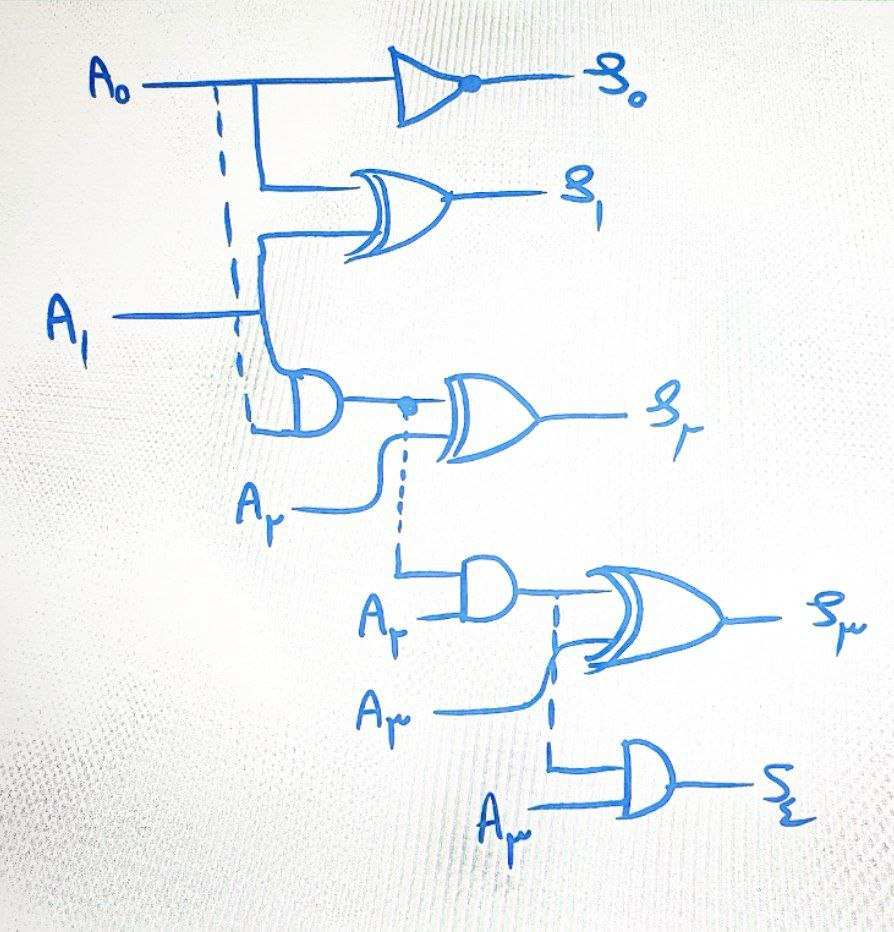 A₀ S₀
S₁
A₁
S۲
A۲
A۲ S۳
A۳
A۳ S۴